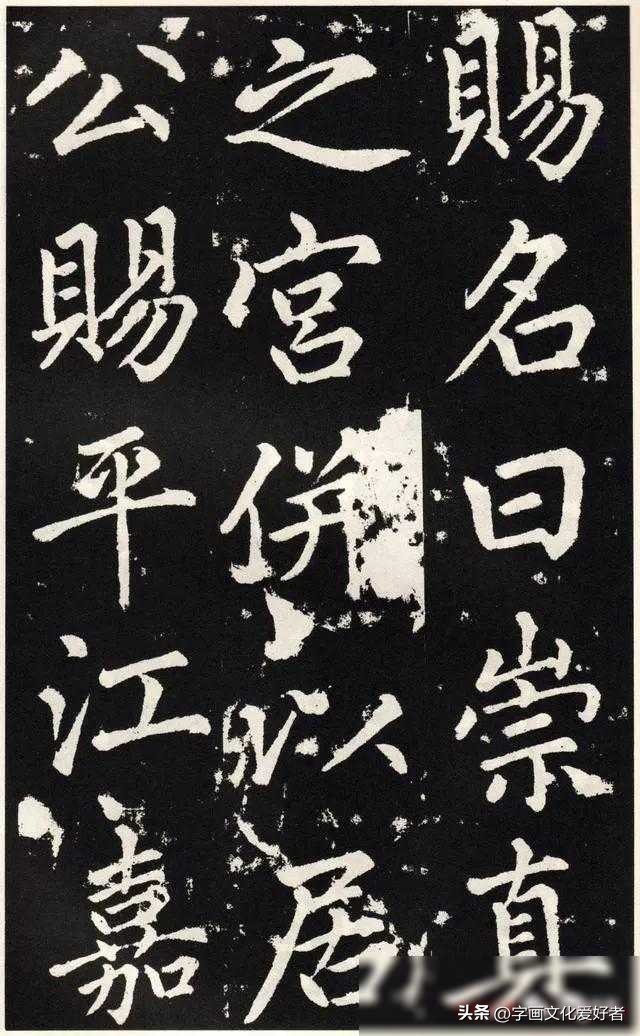 賜名曰崇真
之宮併以居
公賜平江嘉
头条 @字画文化爱好者